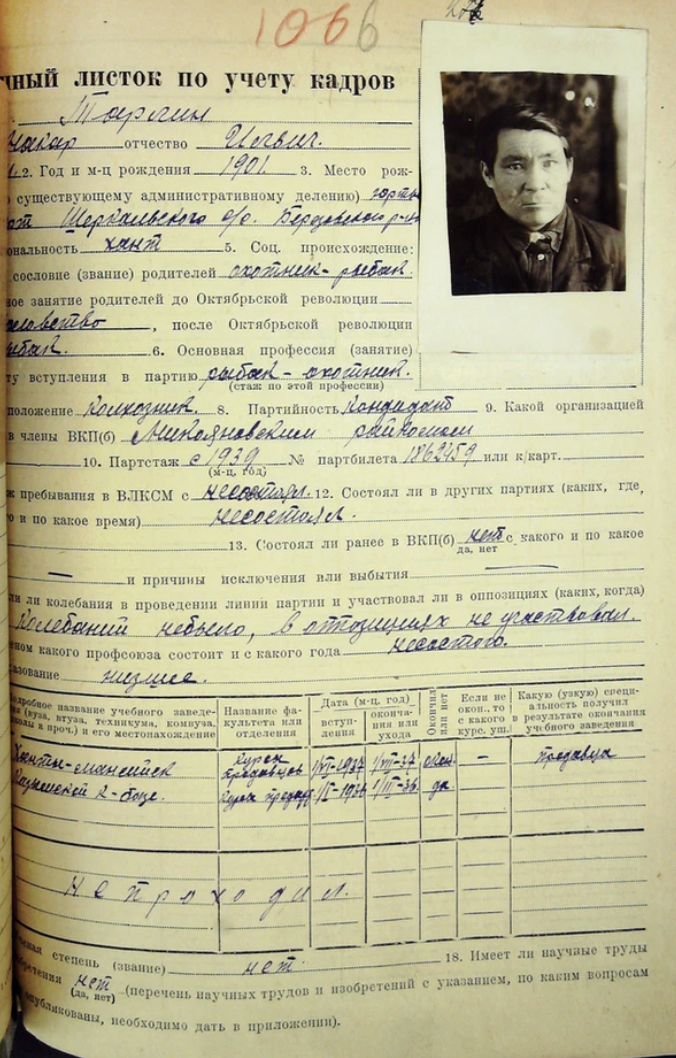 1066
ный листок по учету кадров
Тарлин
Макар отчество Ильич.
2. Год и м-ц рождения 1901. 3. Место рож-
существующему административному делению) юрты
Шеркальского с/с. Березовского р-на
ональность хант 5. Соц. происхождение:
сословие (звание) родителей охотник-рыбак.
ное занятие родителей до Октябрьской революции
, после Октябрьской революции
рыбак. 6. Основная профессия (занятие)
ту вступления в партию рыбак - охотник.
(стаж по этой профессии)
положение колхозник. 8. Партийность Кандидат 9. Какой организацией
в члены ВКП(б) Микояновским райкомом
10. Партстаж с 1939 № партбилета 1862459 или к/карт.
(м-ц, год)
ж пребывания в ВЛКСМ с несостоял. 12. Состоял ли в других партиях (каких, где,
о и по какое время) несостоял.
13. Состоял ли ранее в ВКП(б) нет с какого и по какое
да, нет
— и причины исключения или выбытия —
ли ли колебания в проведении линии партии и участвовал ли в оппозициях (каких, когда)
Колебаний небыло, в оппозициях не участвовал.
ном какого профсоюза состоит и с какого года несостою.
разование низшее.
одробное название учебного заведе- Название фа- Дата (м-ц, год) Окончил или нет Если не Какую (узкую) специ-
(вуза, втуза, техникума, комвуза, культета или вступ- оконча- окон., то альность получил
колы и проч.) и его местонахождение отделения ления ния или с какого в результате окончания
ухода курс. уш. учебного заведения
Ханты-мансийск курсы продавцов 1/VI-1937 1/VII-37. окон. — продавца
Казымской к-базе. курсы 1/I-1936 1/III-36. да. —
Непроходил.
еная степень (звание) нет. 18. Имеет ли научные труды
обретения нет (перечень научных трудов и изобретений с указанием, по каким вопросам
(да, нет)
опубликованы, необходимо дать в приложении).